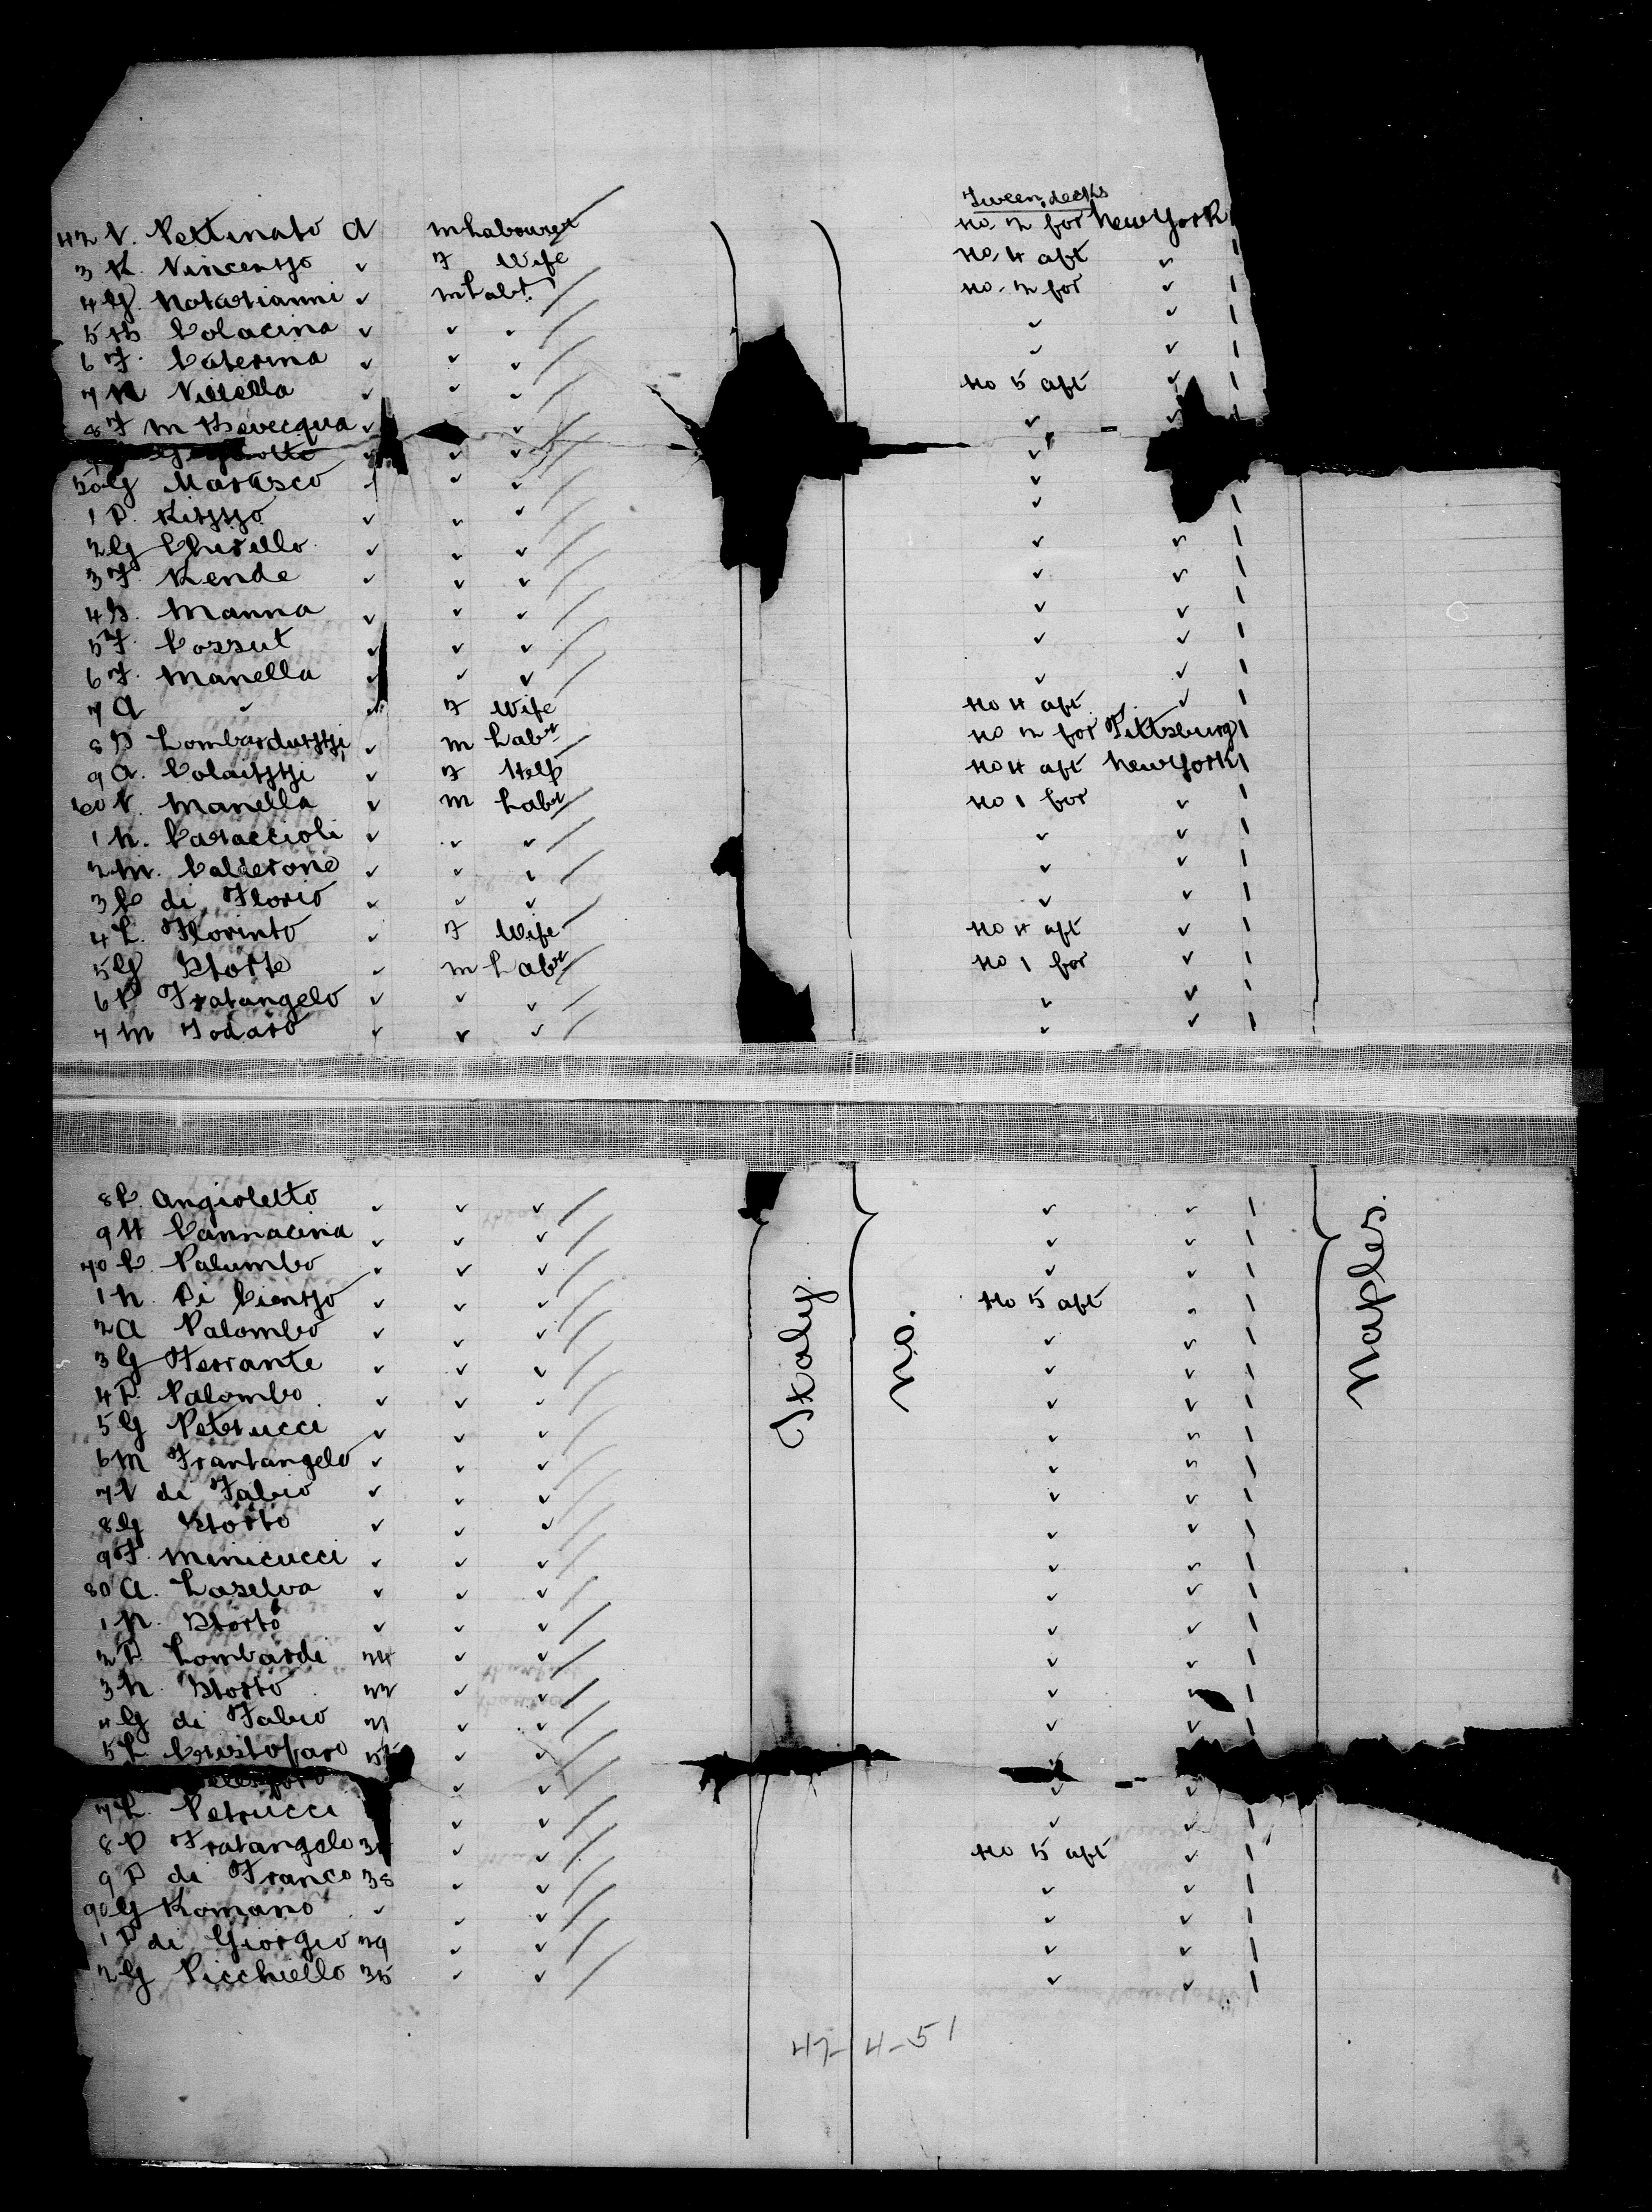 Tween decks
42 V. Pettinato a m Labourer No. 2 for New York 1
3 R. Vincenzo ✓ F Wife No. 4 aft ✓ 1
4 G. Notarianni ✓ m Labr. No. 2 for ✓ 1
5 B. Colacina ✓ ✓ ✓ ✓ ✓ 1
6 F. Caterina ✓ ✓ ✓ ✓ ✓ 1
7 N Villella ✓ ✓ ✓ No 5 aft ✓ 1
8 F m Bevecqua ✓ ✓ ✓ ✓
✓ ✓ ✓ ✓
50 G Marasco ✓ ✓ ✓ ✓
1 P. Rizzo ✓ ✓ ✓ ✓ 1
2 G Chirillo ✓ ✓ ✓ ✓ ✓ 1
3 F. Rende ✓ ✓ ✓ ✓ ✓ 1
4 S. Manna ✓ ✓ ✓ ✓ ✓ 1
5 F. Cossut ✓ ✓ ✓ ✓ ✓ 1
6 F. Manella ✓ ✓ ✓ ✓ ✓ 1
7 A ✓ ✓ F Wife No 4 aft ✓ 1
8 D Lombarduzzi ✓ m Labr No 2 for Pittsburg 1
9 A. Colaizzi ✓ F Help No 4 aft New York 1
60 V. Manella ✓ m Labr No 1 for ✓ 1
1 N. Caraccioli ✓ ✓ ✓ ✓ ✓ 1
2 M. Calderone ✓ ✓ ✓ ✓ ✓ 1
3 C di Florio ✓ ✓ ✓ ✓ ✓ 1
4 L. Florinto ✓ F Wife No 4 aft ✓ 1
5 G Storte ✓ m Labr No 1 for ✓ 1
6 P Fratangelo ✓ ✓ ✓ ✓ ✓ 1
7 M Todaro ✓ ✓ ✓ ✓ ✓ 1
8 C. Angioletto ✓ ✓ ✓ ✓ ✓ 1
9 H Cannacina ✓ ✓ ✓ ✓ ✓ 1
70 C. Palumbo ✓ ✓ ✓ ✓ ✓ 1
1 N. Di Cienzo ✓ ✓ ✓ No 5 aft ✓ 1
2 A Palombo ✓ ✓ ✓ ✓ ✓ 1
Italy.
No.
Naples.
3 G Ferrante ✓ ✓ ✓ ✓ ✓ 1
4 D. Palombo ✓ ✓ ✓ ✓ ✓ 1
5 G Petrucci ✓ ✓ ✓ ✓ ✓ 1
6 M Frantangelo ✓ ✓ ✓ ✓ ✓ 1
7 V di Fabio ✓ ✓ ✓ ✓ ✓ 1
8 G Storto ✓ ✓ ✓ ✓ ✓ 1
9 F. Minicucci ✓ ✓ ✓ ✓ ✓ 1
80 A. Laselva ✓ ✓ ✓ ✓ ✓ 1
1 N. Storto ✓ ✓ ✓ ✓ ✓ 1
2 D. Lombardi 24 ✓ ✓ ✓ ✓ 1
3 N. Storto 22 ✓ ✓ ✓ ✓ 1
4 G di Fabio 21 ✓ ✓ ✓ ✓ 1
5 L Cristofaro ✓ ✓ ✓
✓ ✓ ✓ ✓
7 L. Petrucci ✓ ✓ ✓ ✓ 1
8 D Fratangelo ✓ ✓ No 5 aft ✓ 1
9 D di Franco 38 ✓ ✓ ✓ ✓ 1
90 G Romano ✓ ✓ ✓ ✓ ✓ 1
1 D di Giorgio 29 ✓ ✓ ✓ ✓ 1
2 G Picchiello 35 ✓ ✓ ✓ ✓ 1
47-4-51